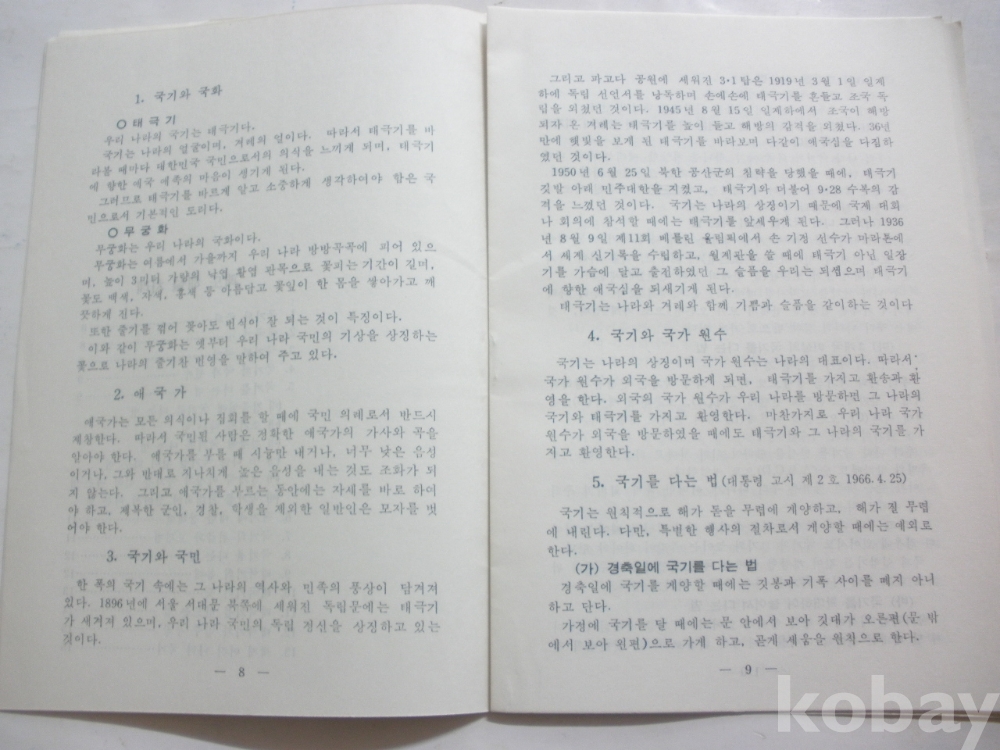 1. 국기와 국화
○ 태 극 기
우리 나라의 국기는 태극기다.
국기는 나라의 얼굴이며, 겨레의 얼이다. 따라서 태극기를 바
라볼 때마다 대한민국 국민으로서의 의식을 느끼게 되며, 태극기
에 향한 애국 애족의 마음이 생기게 된다.
그러므로 태극기를 바르게 알고 소중하게 생각하여야 함은 국
민으로서 기본적인 도리다.
○ 무 궁 화
무궁화는 우리 나라의 국화이다.
무궁화는 여름에서 가을까지 우리 나라 방방곡곡에 피어 있으
며, 높이 3미터 가량의 낙엽 활엽 관목으로 꽃피는 기간이 길며,
꽃도 백색, 자색, 홍색 등 아름답고 꽃잎이 한 몸을 쌓아가고 깨
끗하게 진다.
또한 줄기를 꺾어 꽂아도 번식이 잘 되는 것이 특징이다.
이와 같이 무궁화는 옛부터 우리 나라 국민의 기상을 상징하는
꽃으로 나라의 줄기찬 번영을 말하여 주고 있다.
2. 애 국 가
애국가는 모든 의식이나 집회를 할 때에 국민 의례로서 반드시
제창한다. 따라서 국민된 사람은 정확한 애국가의 가사와 곡을
알아야 한다. 애국가를 부를 때 시늉만 내거나, 너무 낮은 음성
이거나, 그와 반대로 지나치게 높은 음성을 내는 것도 조화가 되
지 않는다. 그리고 애국가를 부르는 동안에는 자세를 바로 하여
야 하고, 제복한 군인, 경찰, 학생을 제외한 일반인은 모자를 벗
어야 한다.
3. 국기와 국민
한 폭의 국기 속에는 그 나라의 역사와 민족의 풍상이 담겨져
있다. 1896년에 서울 서대문 북쪽에 세워진 독립문에는 태극기
가 새겨져 있으며, 우리 나라 국민의 독립 정신을 상징하고 있는
것이다.
— 8 —
그리고 파고다 공원에 세워진 3·1탑은 1919년 3월 1일 일제
하에 독립 선언서를 낭독하며 손에손에 태극기를 흔들고 조국 독
립을 외쳤던 것이다. 1945년 8월 15일 일제하에서 조국이 해방
되자 온 겨레는 태극기를 높이 들고 해방의 감격을 외쳤다. 36년
만에 햇빛을 보게 된 태극기를 바라보며 다같이 애국심을 다짐하
였던 것이다.
1950년 6월 25일 북한 공산군의 침략을 당했을 때에, 태극기
깃발 아래 민주대한을 지켰고, 태극기와 더불어 9·28 수복의 감
격을 느꼈던 것이다. 국기는 나라의 상징이기 때문에 국제 대회
나 회의에 참석할 때에는 태극기를 앞세우게 된다. 그러나 1936
년 8월 9일 제11회 베를린 올림픽에서 손 기정 선수가 마라톤에
서 세계 신기록을 수립하고, 월계관을 쓸 때에 태극기 아닌 일장
기를 가슴에 달고 출전하였던 그 슬픔을 우리는 되셉으며 태극기
에 향한 애국심을 되새기게 된다.
태극기는 나라와 겨레와 함께 기쁨과 슬픔을 같이하는 것이다
4. 국기와 국가 원수
국기는 나라의 상징이며 국가 원수는 나라의 대표이다. 따라서
국가 원수가 외국을 방문하게 되면, 태극기를 가지고 환송과 환
영을 한다. 외국의 국가 원수가 우리 나라를 방문하면 그 나라의
국기와 태극기를 가지고 환영한다. 마찬가지로 우리 나라 국가
원수가 외국을 방문하였을 때에도 태극기와 그 나라의 국기를 가
지고 환영한다.
5. 국기를 다는 법(대통령 고시 제2호 1966.4.25)
국기는 원칙적으로 해가 돋을 무렵에 게양하고, 해가 질 무렵
에 내린다. 다만, 특별한 행사의 절차로서 게양할 때에는 예외로
한다.
(가) 경축일에 국기를 다는 법
경축일에 국기를 게양할 때에는 깃봉과 기폭 사이를 떼지 아니
하고 단다.
가정에 국기를 달 때에는 문 안에서 보아 깃대가 오른편(문 밖
에서 보아 왼편)으로 가게 하고, 곧게 세움을 원칙으로 한다.
— 9 —
kobay